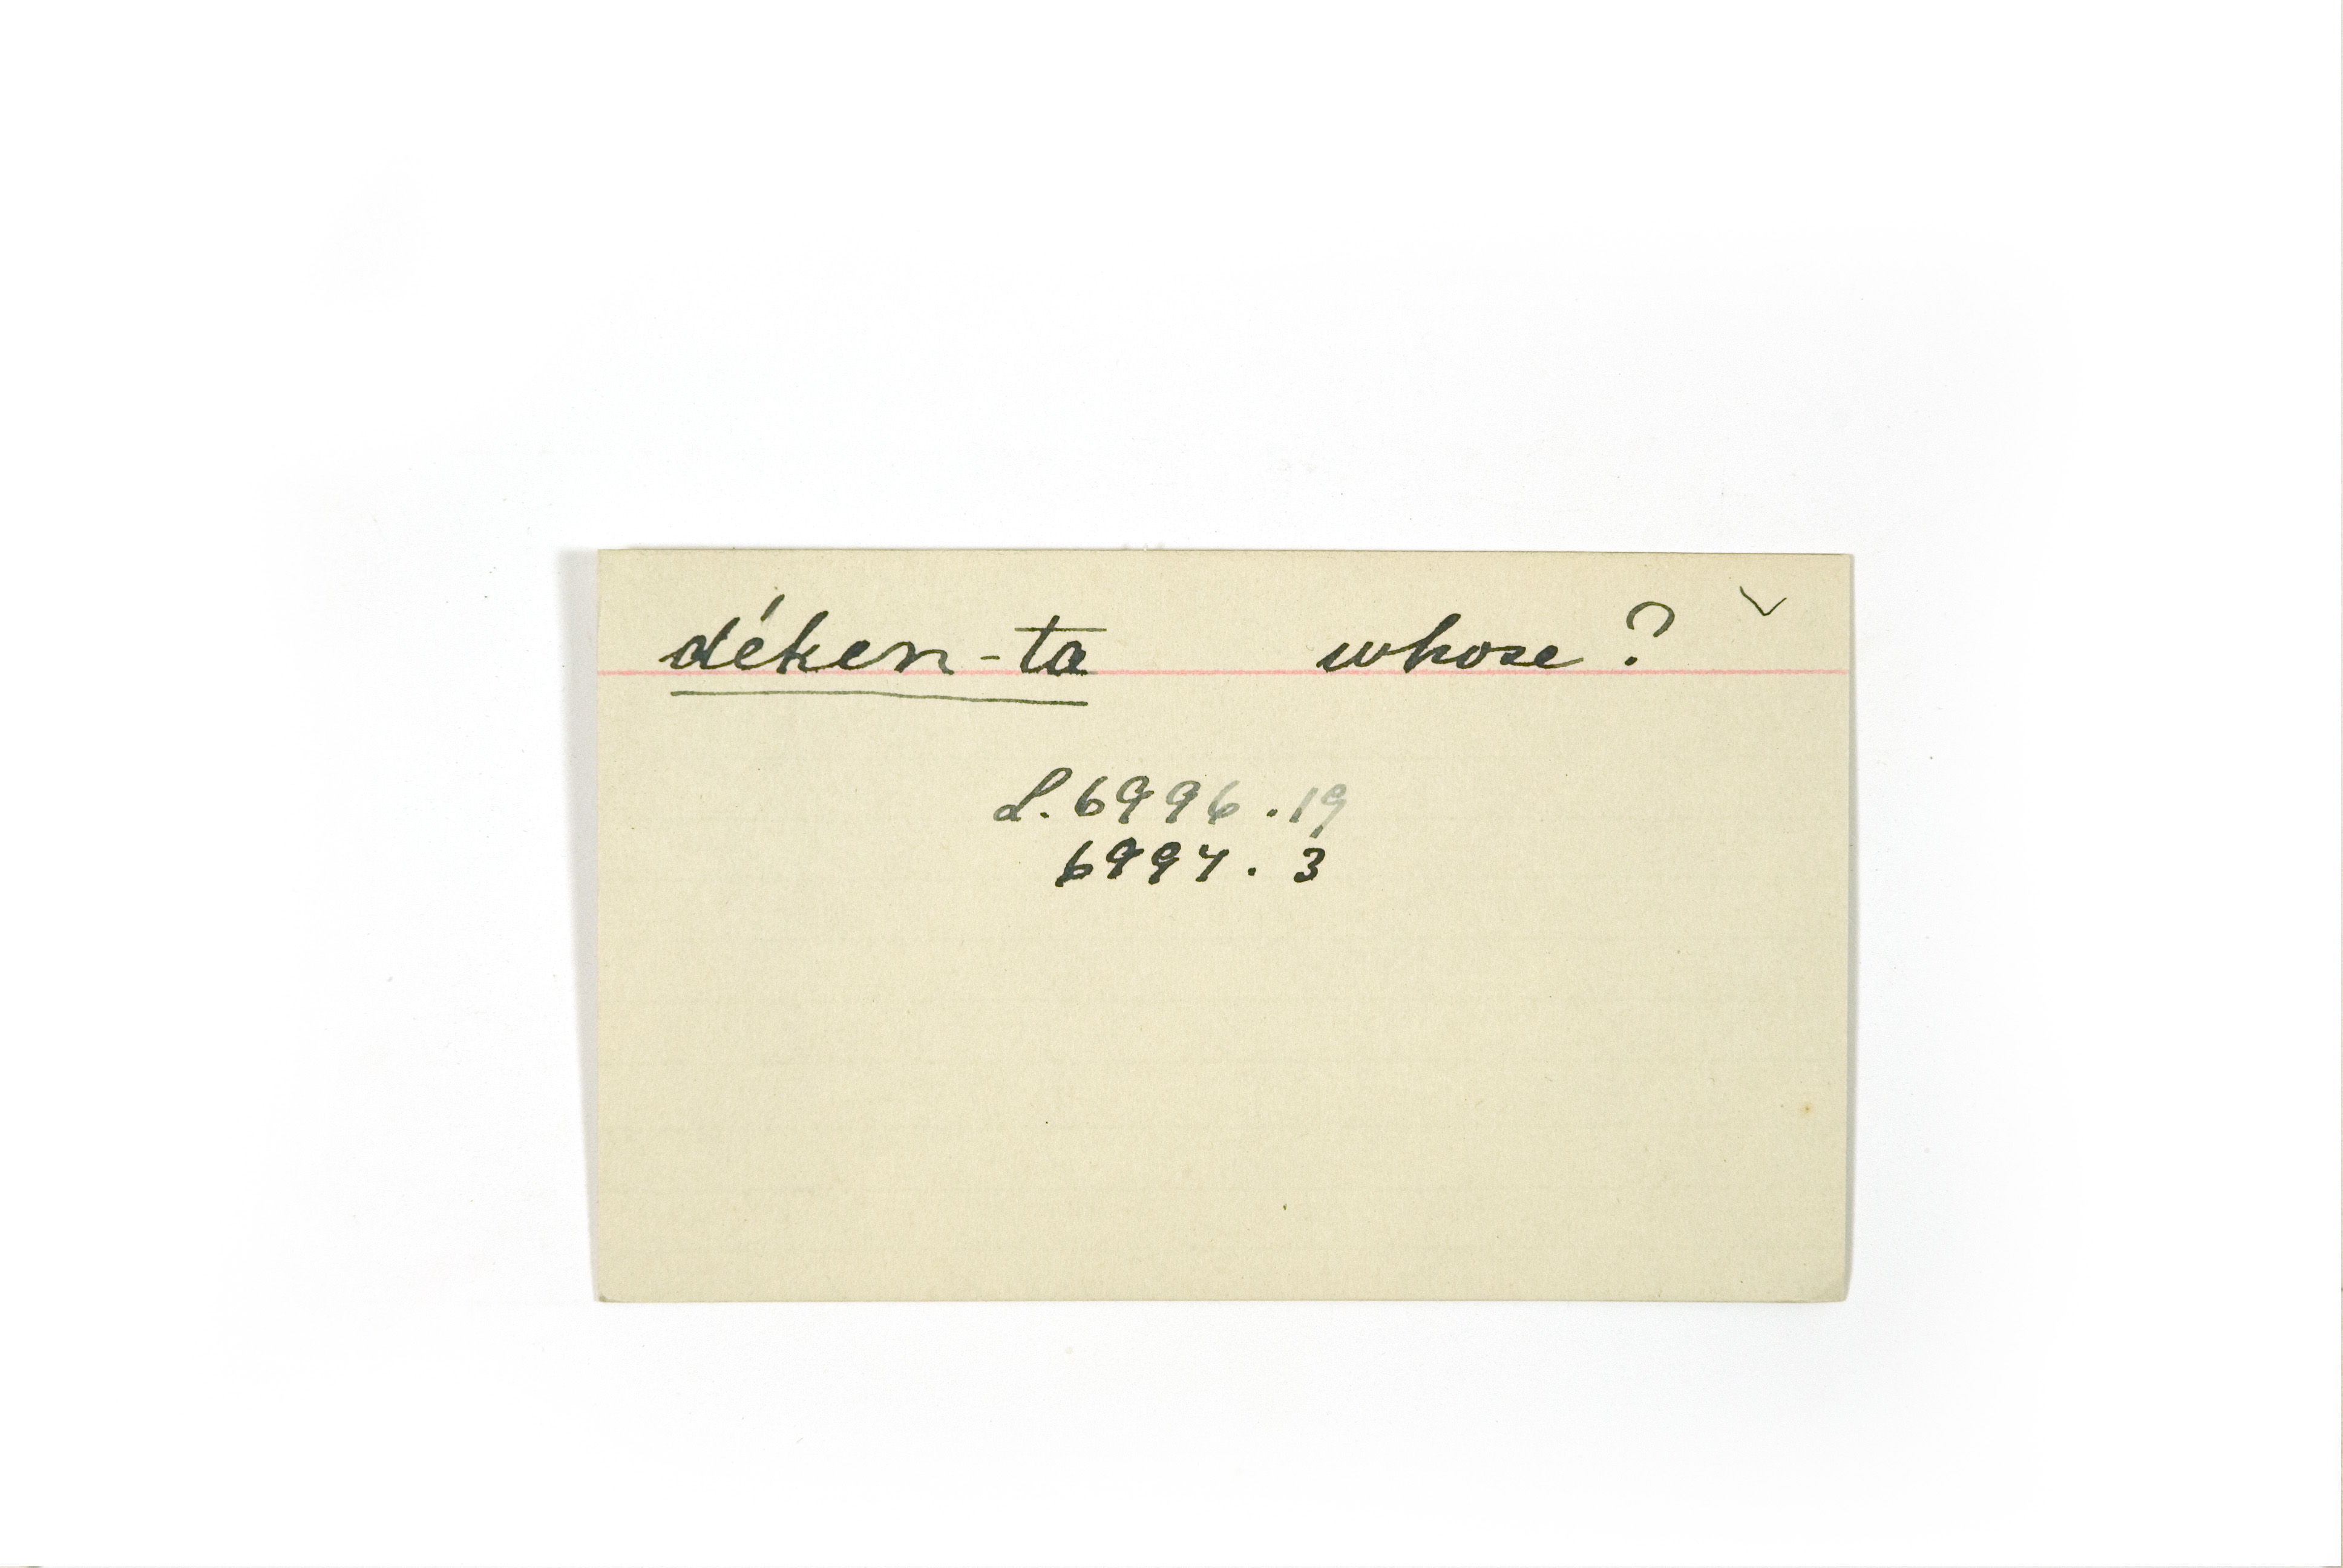 déken-ta whose? ✓
L. 6996.19
6997.3